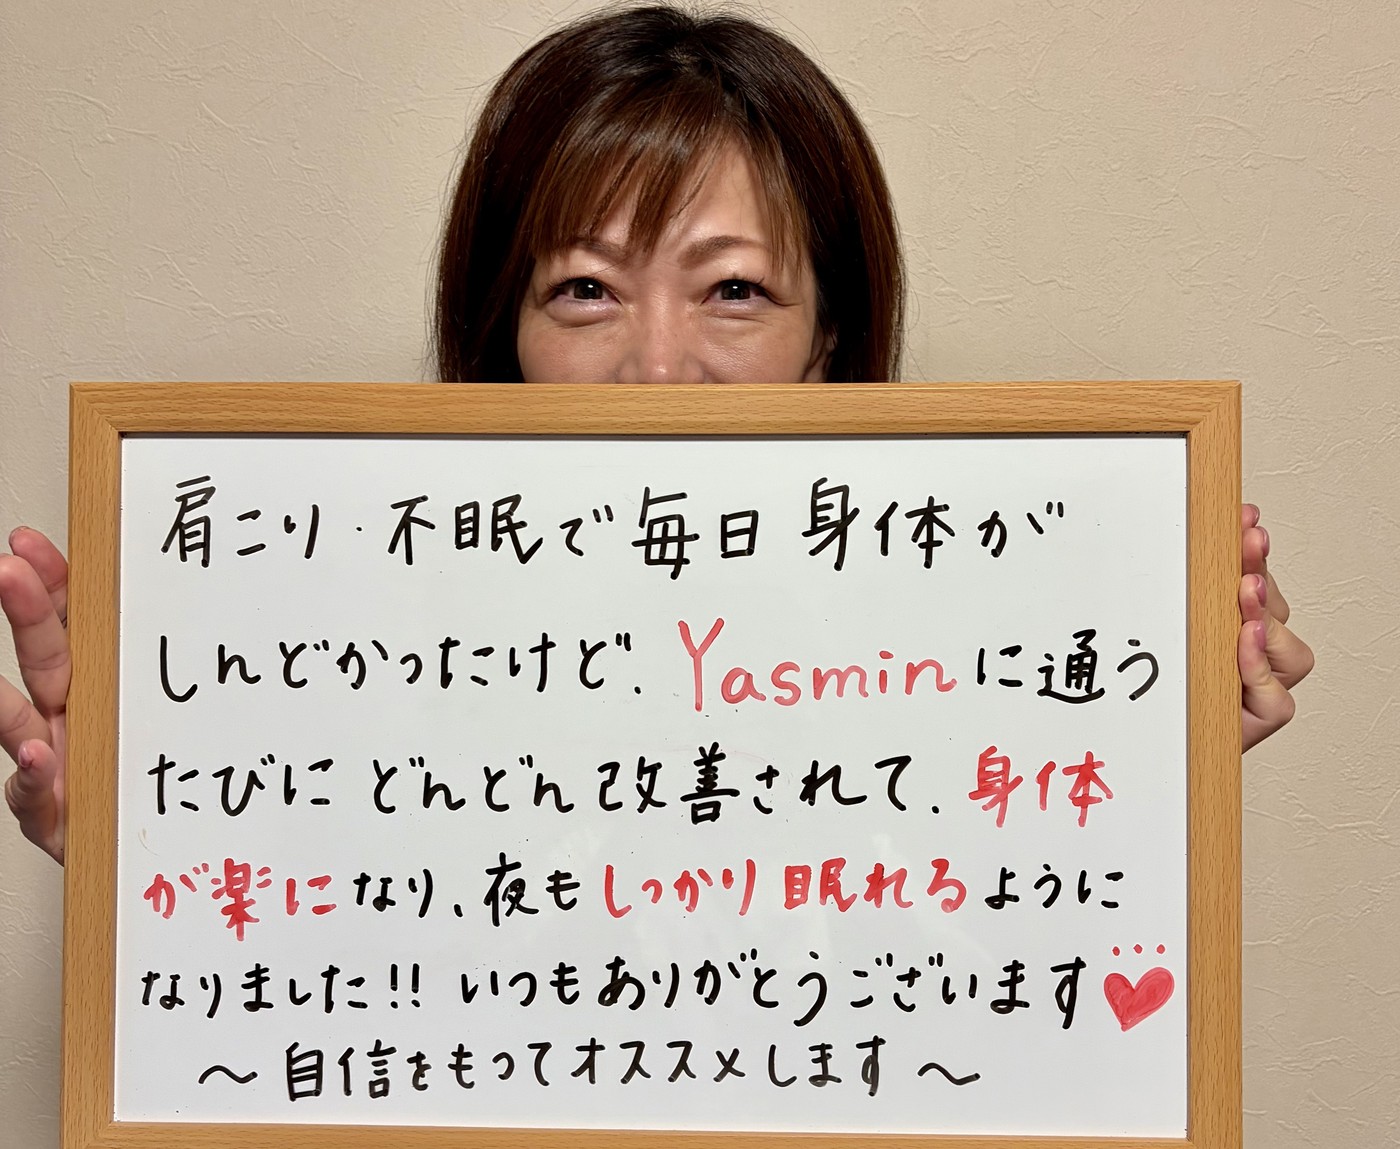 肩こり・不眠で毎日 身体が
しんどかったけど、Yasminに通う
たびに どんどん改善されて、身体
が楽になり、夜もしっかり眠れるように
なりました!! いつもありがとうございます♥
～自信をもってオススメします～